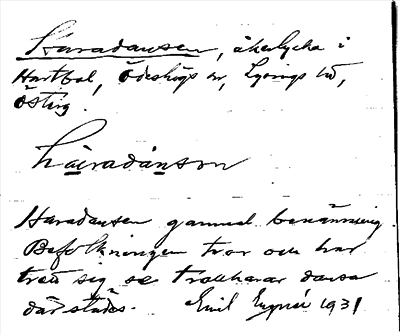 Haradansen, åkerlycka i
Hartbol, Ödeshögs sn, Lysings hd,
Östg.
hàradánsən
Haradansen gammal benämning.
Befolkningen tror och har
trott sig se trollharar dansa
därstädes. Emil 1931